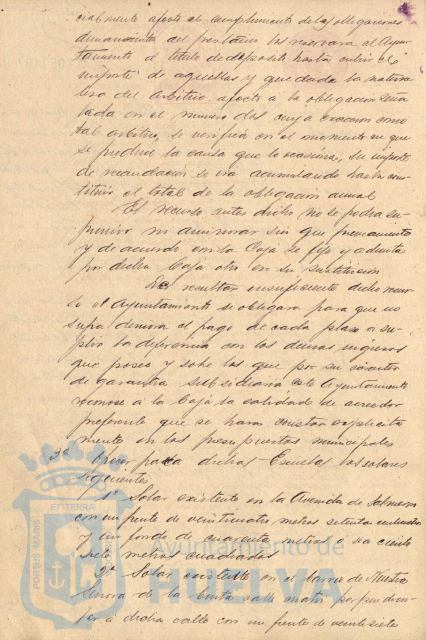 cialmente afecto al cumplimiento de las obligaciones
dimanantes del préstamo las reservará el Ayun-
tamiento a título de depósito hasta cubrir el
importe de aquellas y que dada la natura
leza del arbitrio, afecto á la obligación seña
lada en el número dos cuya exacción como
tal arbitrio, se verifica en el momento en que
se produce la causa que lo ocasiona, su importe
de recaudación se irá acumulando hasta cons-
tituir el total de la obligación anual
El recurso antes dicho no se podrá su-
primir ni aminorar sin que previamente
y de acuerdo con la Caja se fije y admita
por dicha Caja otro en su sustitución
De resultar insuficiente dicho recur-
so el Ayuntamiento se obligará para que no
sufra demora el pago de cada plazo a su-
plir la diferencia con los demás ingresos
que posea y sobre los que por su carácter
de garantía subsidiaria este Ayuntamiento
reconoce á la Caja la calidad de acreedor
preferente que se hará constar explicita
mente en los presupuestos municipales
3º para dichas Escuelas los solares
siguientes
1º Solar existente en la Avenida de
con un frente de veinticuatro metros setenta
y un fondo de cuarenta metros ó sea ciento
siete metros cuadrados
2º Solar existente en el barrio de Nuestra
Señora de la Cinta calle
á dicha calle con un frente de veintisiete
PORTUS MARIS
ET TERRA
Ayuntamiento de
HUELVA